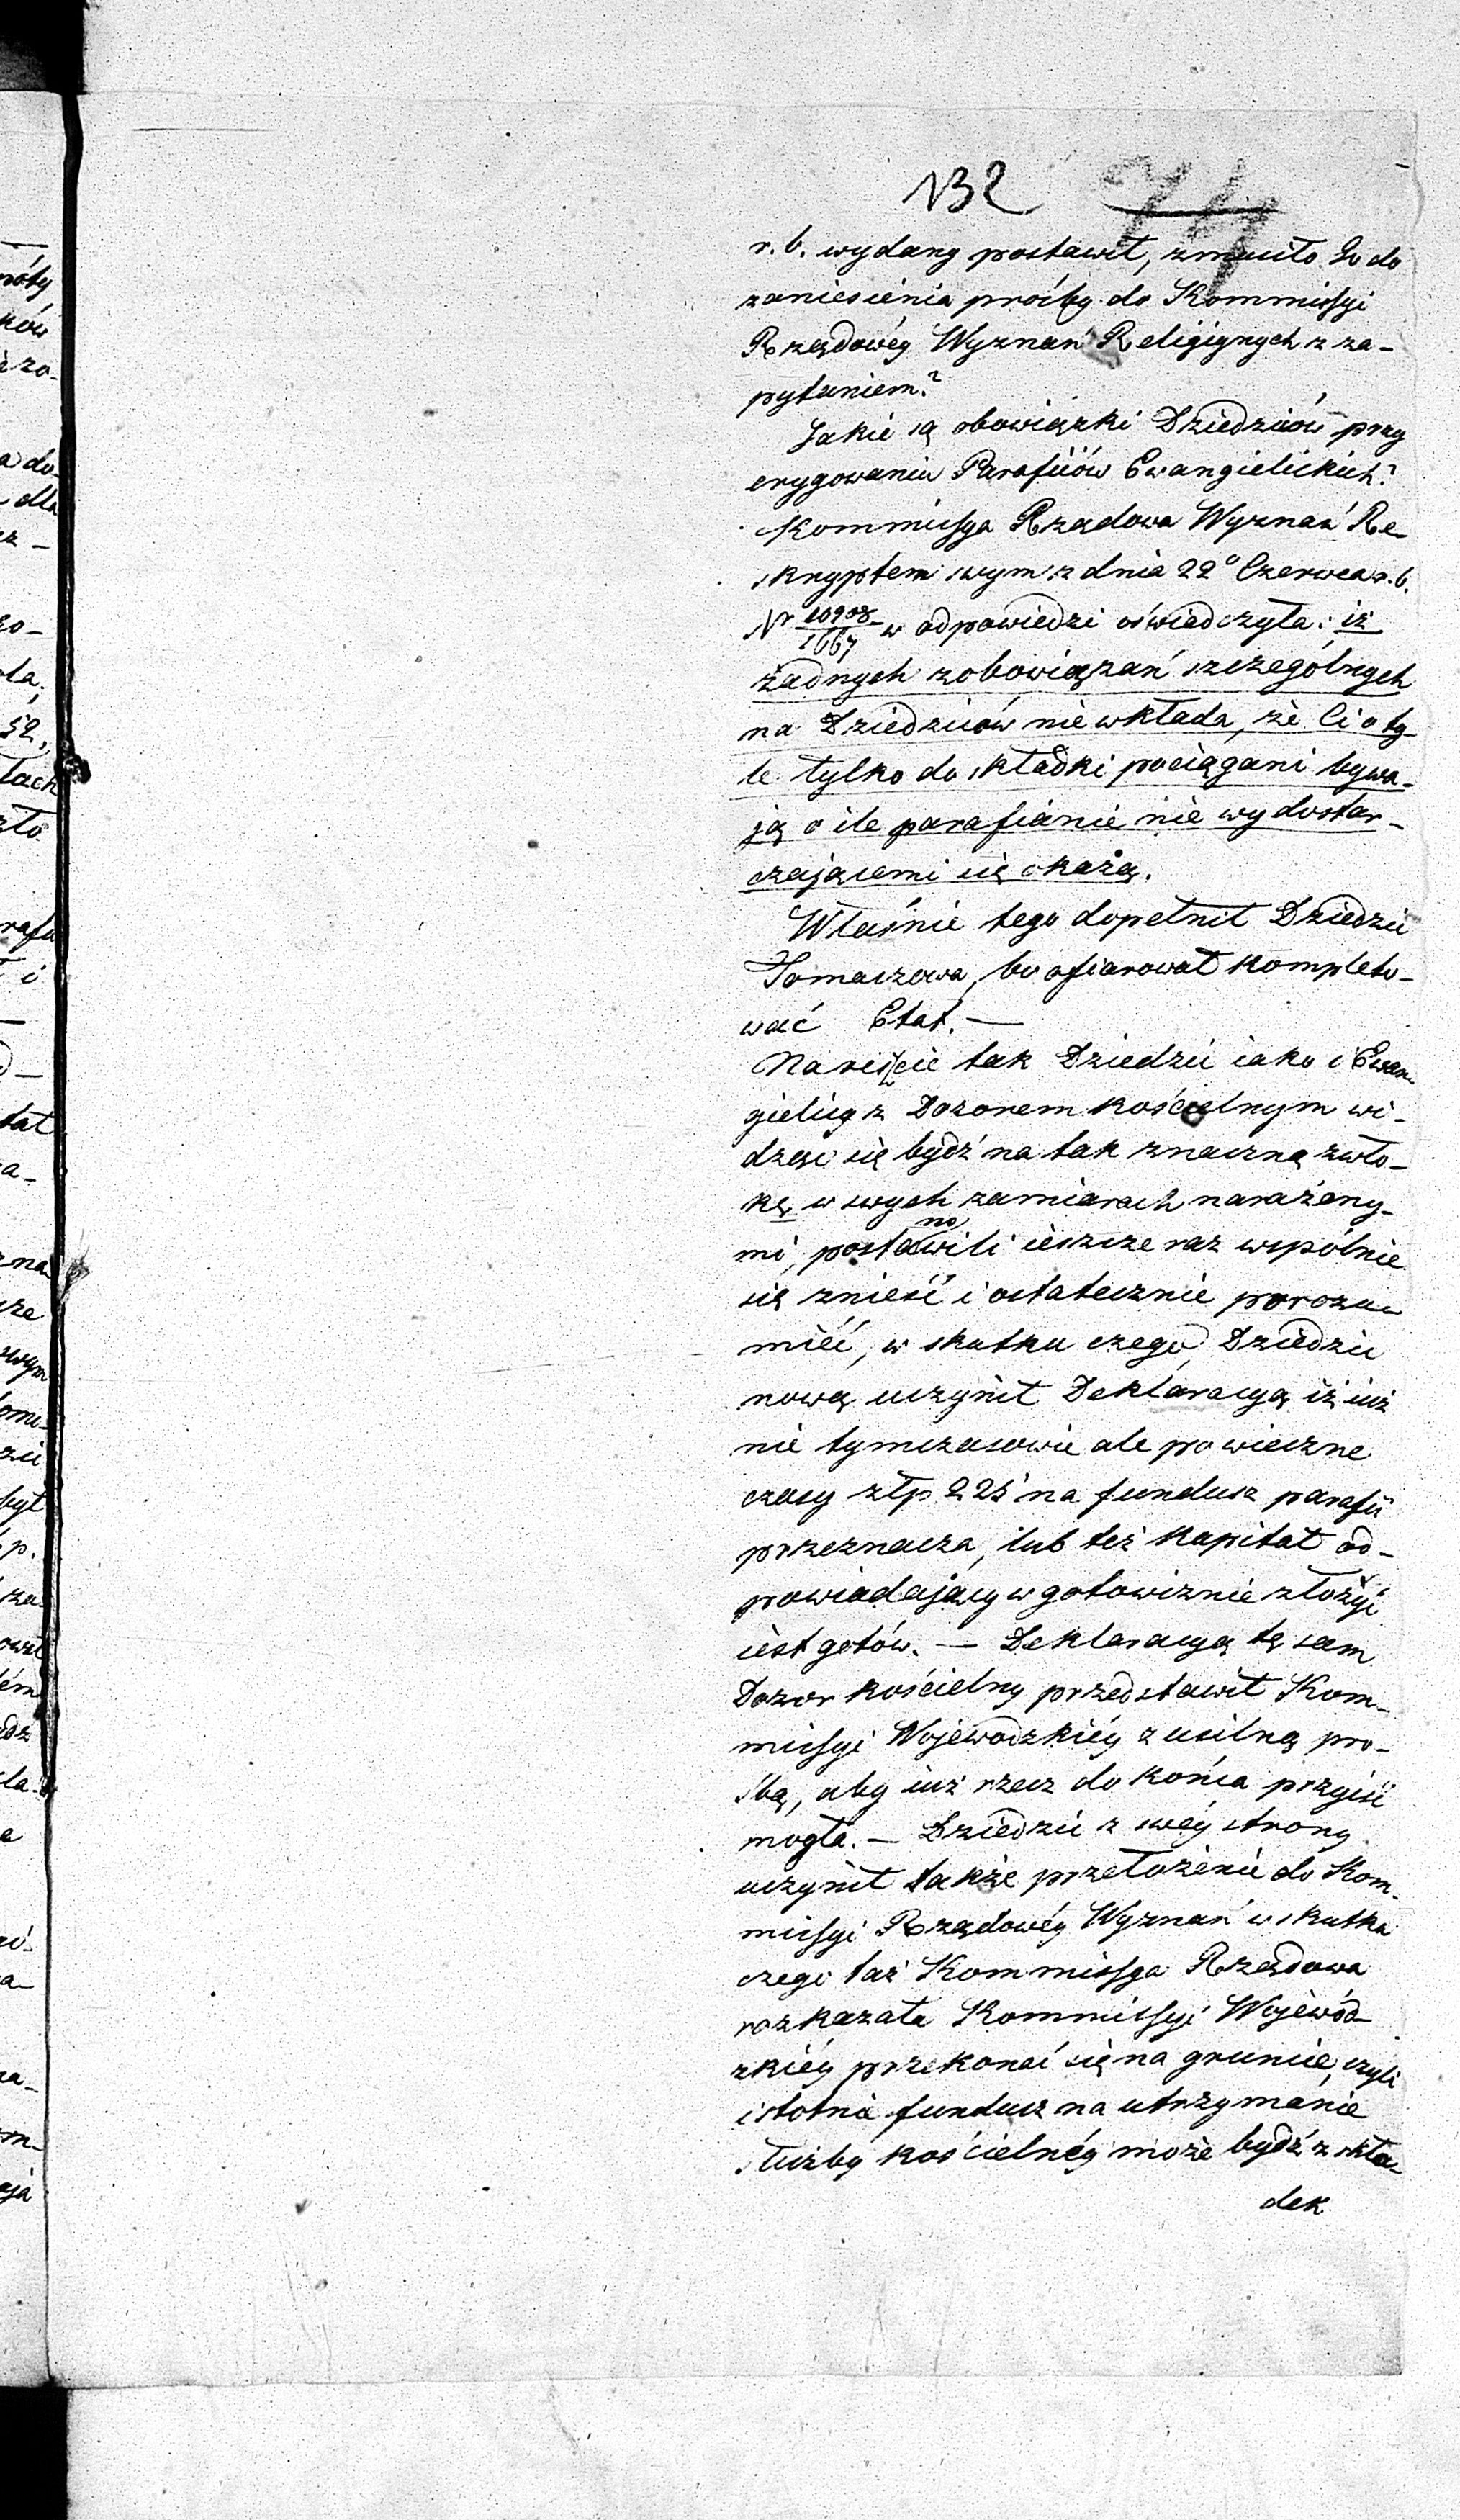 132 74
r. b. wydany postawił, zmusiło Go do
zaniesienia prośby do Kommissyi
Rządowéy Wyznań Religiynych z za-
pytaniem?
Jakie są obowiązki Dziedziców przy
erygowaniu Parafiiów Ewangielickich?
Kommissya Rządowa Wyznań Re-
skryptem swym z dnia 22° Czerwca r. b.
Nr 10908/1667 w odpowiedzi oświadczyła: iż
żadnych zobowiązań szczególnych
na Dziedziców nie wkłada, że Ci o ty-
le tylko do składki pociągani bywa-
ją o ile parafianie nie wydostar-
czaiącemi się okażą.
Właśnie tego dopełnił Dziedzic
Tomaszowa, bo ofiarował kompleto-
wać Etat. —
Nareszcie tak Dziedzic iako i Ewan-
gielicy z Dozorem kościelnym wi-
dząc się bydź na tak znaczną zwło-
kę w swych zamiarach narażony-
mi, postanowili ieszcze raz wspólnie
się znieść i ostatecznie porozu-
mieć, w skutku czego, Dziedzic
nową uczynił Deklaracyą iż iuż
nie tymczasowie ale po wieczne
czasy złp 225 na fundusz parafii
przeznacza, lub też kapitał od-
powiadający w gotowiznie złożyć
iest gotów. — Deklaracyą tę sam
Dozor kościelny przedstawił Kom-
missyi Wojewodzkiéy z usilną pro-
śbą, aby iuż rzecz do końca przyiść
mogła. — Dziedzic z swéy strony
uczynił także przełożenie do Kom-
missyi Rządowéy Wyznań w skutku
czego taż Kommissya Rządowa
rozkazała Kommissyi Wojewód-
zkiéy przekonać się na gruncie, czyli
istotnie fundusz na utrzymanie
służby kościelnéy może bydź z skła-
dek